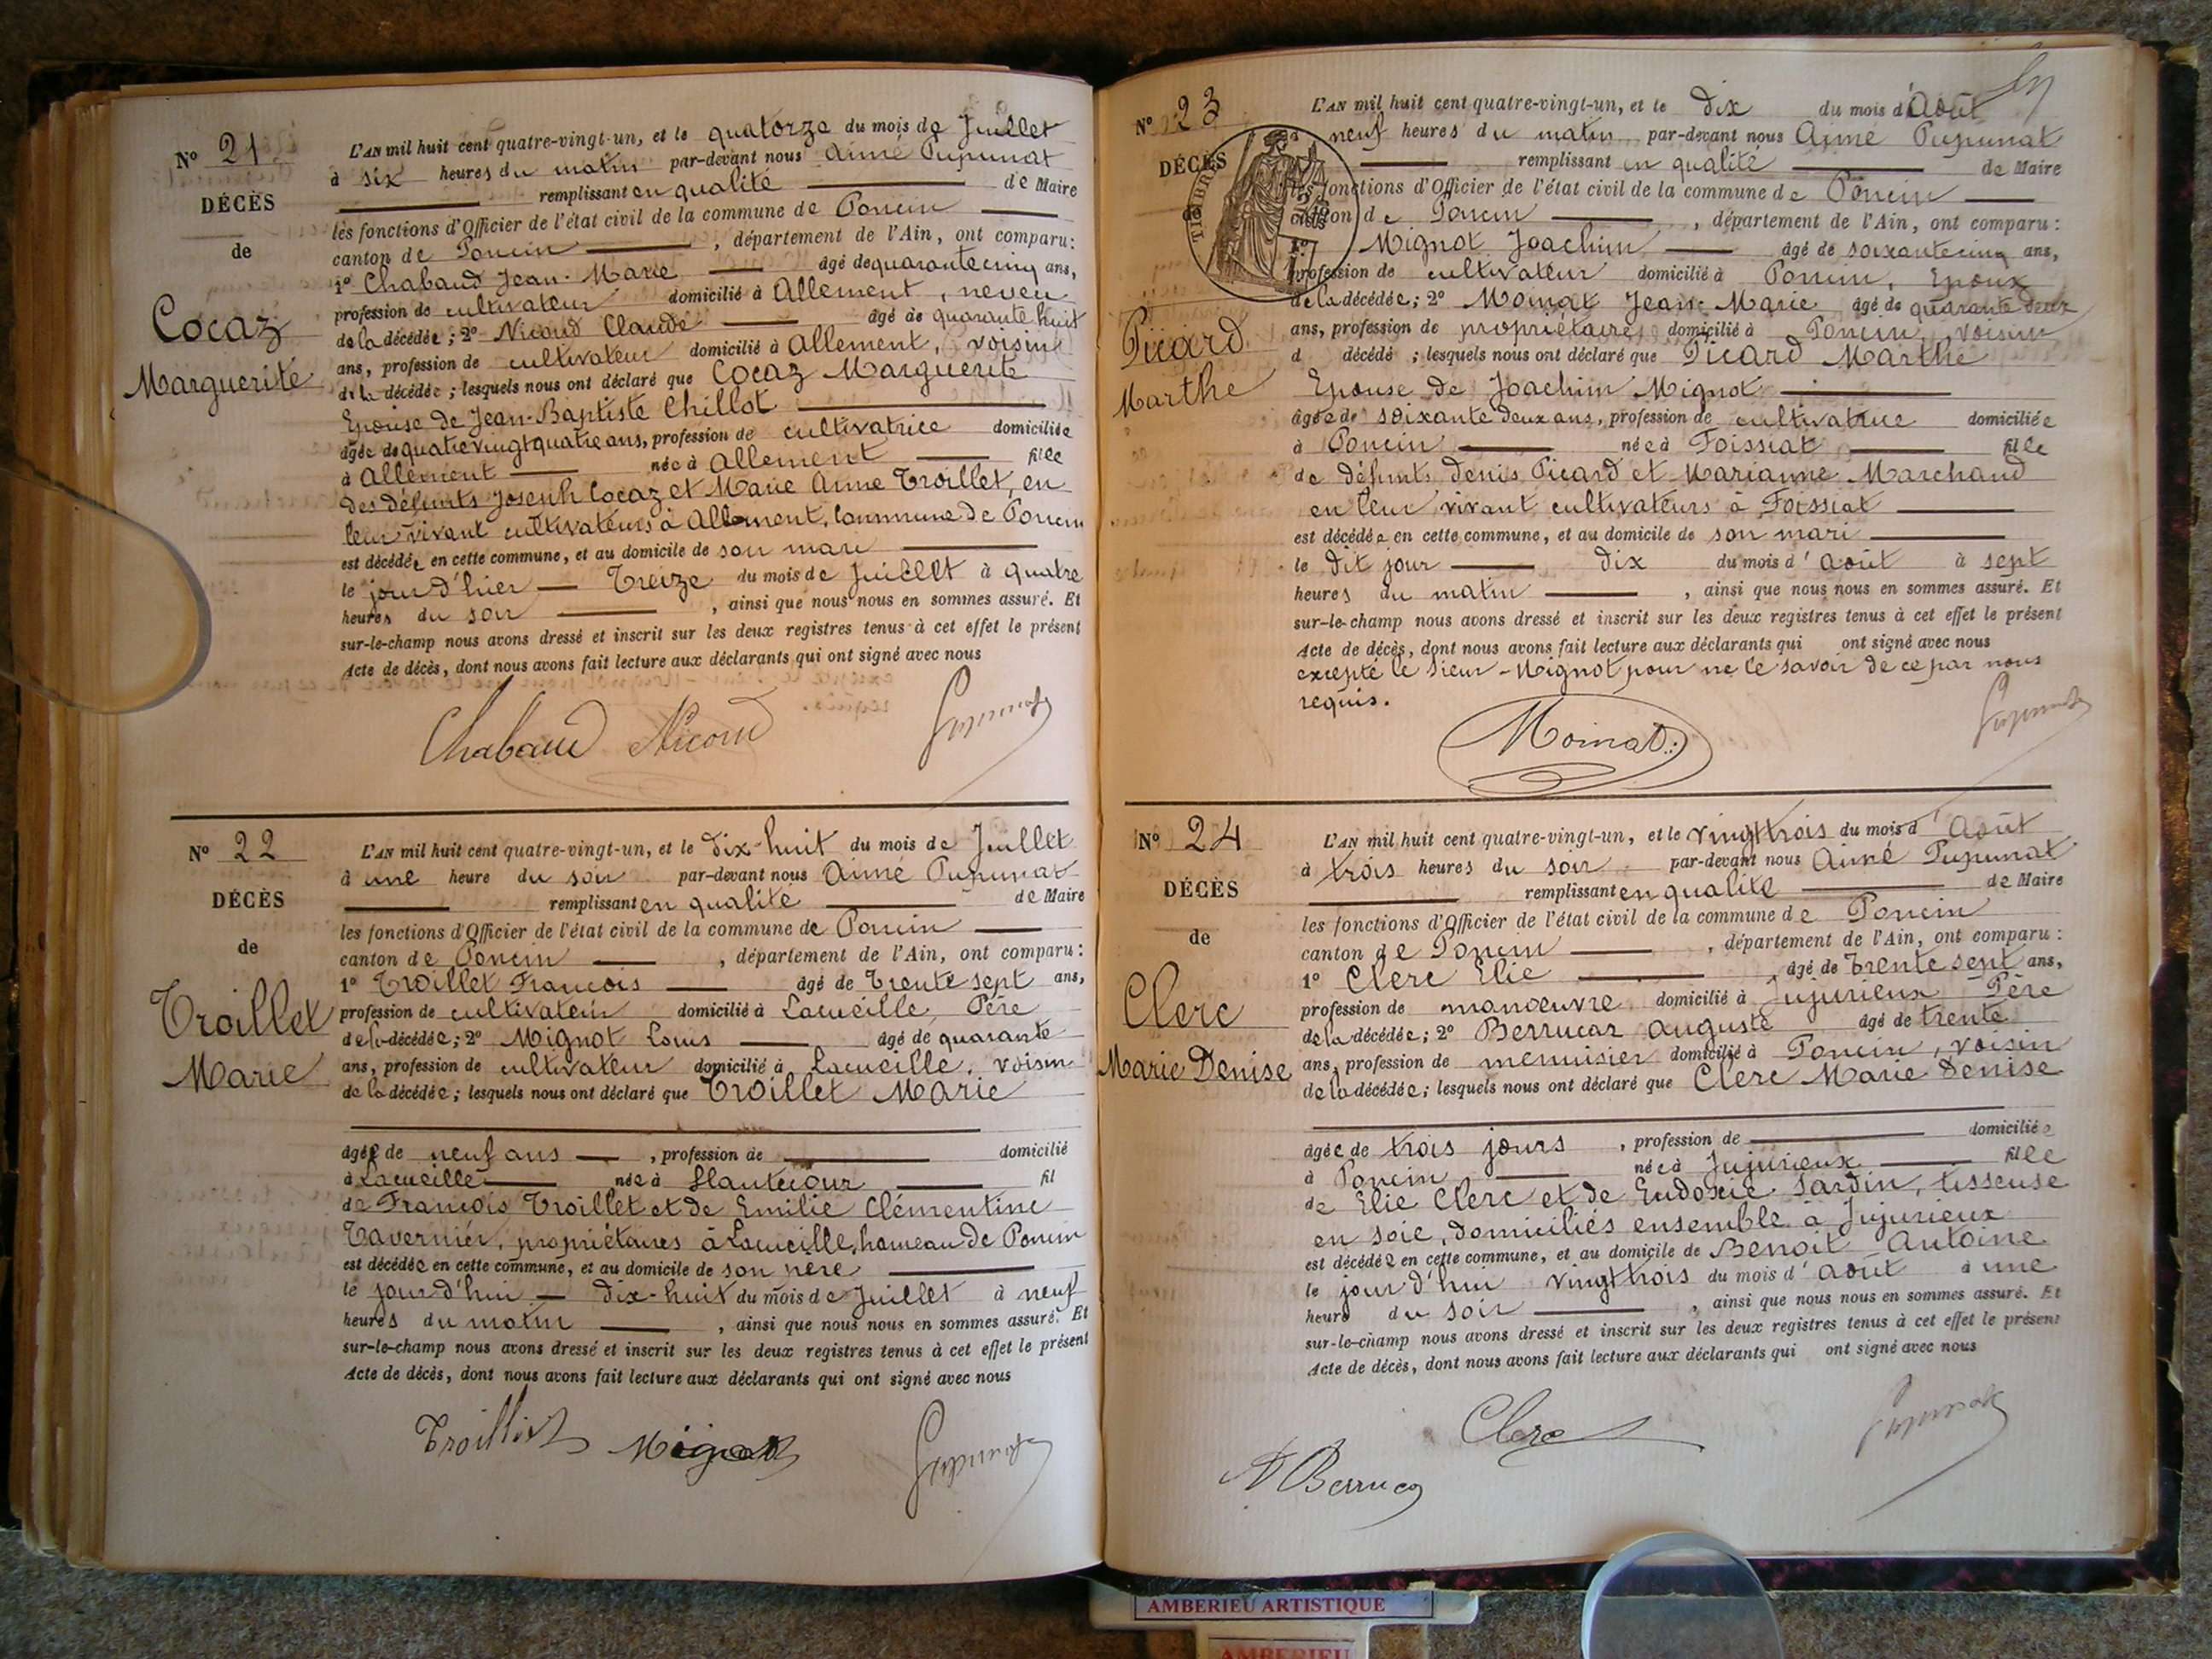 N° 21
DÉCÈS
de
Cocaz
Marguerite
L'AN mil huit cent quatre-vingt-un, et le quatorze du mois de Juillet
à six heures du matin par-devant nous Aimé Pupunat
remplissant en qualité de Maire
les fonctions d'Officier de l'état civil de la commune de Poncin
canton de Poncin, département de l'Ain, ont comparu:
1° Chabaud Jean-Marie âgé de quarante cinq ans,
profession de cultivateur domicilié à Allement, neveu
de la décédée; 2° Nicoud Claude âgé de quarante huit
ans, profession de cultivateur domicilié à Allement, voisin
de la décédée; lesquels nous ont déclaré que Cocaz Marguerite
Epouse de Jean-Baptiste Chillot
âgée de quatre vingt quatre ans, profession de cultivatrice domiciliée
à Allement née à Allement fille
des défunts Joseph Cocaz et Marie Anne Troillet, en
leur vivant cultivateurs à Allement, Commune de Poncin
est décédée en cette commune, et au domicile de son mari
le jour d'hier Treize du mois de Juillet à quatre
heures du soir, ainsi que nous nous en sommes assuré. Et
sur-le-champ nous avons dressé et inscrit sur les deux registres tenus à cet effet le présent
Acte de décès, dont nous avons fait lecture aux déclarants qui ont signé avec nous
Chabaud Nicoud Pupunat
N° 22
DÉCÈS
de
Troillet
Marie
L'AN mil huit cent quatre-vingt-un, et le dix-huit du mois de Juillet
à une heure du soir par-devant nous Aimé Pupunat
remplissant en qualité de Maire
les fonctions d'Officier de l'état civil de la commune de Poncin
canton de Poncin, département de l'Ain, ont comparu:
1° Troillet François âgé de Trente sept ans,
profession de cultivateur domicilié à Lacueille, Père
de la décédée; 2° Mignot Louis âgé de quarante
ans, profession de cultivateur domicilié à Lacueille, voisin
de la décédée; lesquels nous ont déclaré que Troillet Marie
âgée de neuf ans, profession de domicilié
à Lacueille née à Hautecour fil
de François Troillet et de Emilie Clémentine
Tavernier, propriétaires à Lacueille, hameau de Poncin
est décédée en cette commune, et au domicile de son père
le jour d'hui dix-huit du mois de Juillet à neuf
heures du matin, ainsi que nous nous en sommes assuré. Et
sur-le-champ nous avons dressé et inscrit sur les deux registres tenus à cet effet le présent
Acte de décès, dont nous avons fait lecture aux déclarants qui ont signé avec nous
Troillet Mignot Pupunat
N° 23
DÉCÈS
de
TIMBRE
Picard
Marthe
L'AN mil huit cent quatre-vingt-un, et le dix du mois d'Août
neuf heures du matin par-devant nous Aimé Pupunat
remplissant en qualité de Maire
les fonctions d'Officier de l'état civil de la commune de Poncin
canton de Poncin, département de l'Ain, ont comparu:
1° Mignot Joachim âgé de soixante cinq ans,
profession de cultivateur domicilié à Poncin, Epoux
de la décédée; 2° Moinat Jean-Marie âgé de quarante deux
ans, profession de propriétaire domicilié à Poncin, voisin
d décédé; lesquels nous ont déclaré que Picard Marthe
Epouse de Joachim Mignot
âgée de soixante deux ans, profession de cultivatrice domiciliée
à Poncin née à Foissiat fille
de défunts Denis Picard et Marianne Marchand
en leur vivant cultivateurs à Foissiat
est décédée en cette commune, et au domicile de son mari
le dit jour dix du mois d'août à sept
heures du matin, ainsi que nous nous en sommes assuré. Et
sur-le-champ nous avons dressé et inscrit sur les deux registres tenus à cet effet le présent
Acte de décès, dont nous avons fait lecture aux déclarants qui ont signé avec nous
excepté le sieur Mignot pour ne le savoir de ce par nous
requis.
Moinat Pupunat
N° 24
DÉCÈS
de
Clerc
Marie Denise
L'AN mil huit cent quatre-vingt-un, et le vingt trois du mois d'août
à trois heures du soir par-devant nous Aimé Pupunat
remplissant en qualité de Maire
les fonctions d'Officier de l'état civil de la commune de Poncin
canton de Poncin, département de l'Ain, ont comparu:
1° Clerc Elie, âgé de Trente sept ans,
profession de manoeuvre domicilié à Jujurieux Père
de la décédée; 2° Berrucaz auguste âgé de trente
ans, profession de menuisier domicilié à Poncin, voisin
de la décédée; lesquels nous ont déclaré que Clerc Marie Denise
âgée de trois jours, profession de domiciliée
à Poncin née à Jujurieux fille
de Elie Clerc et de Eudoxie Jardin, tisseuse
en soie, domiciliés ensemble à Jujurieux
est décédée en cette commune, et au domicile de Benoit Antoine
le jour d'hui vingt trois du mois d'août à une
heure du soir, ainsi que nous nous en sommes assuré. Et
sur-le-champ nous avons dressé et inscrit sur les deux registres tenus à cet effet le présent
Acte de décès, dont nous avons fait lecture aux déclarants qui ont signé avec nous
Clerc Pupunat
A Berruca
AMBERIEU ARTISTIQUE
AMBERIEU